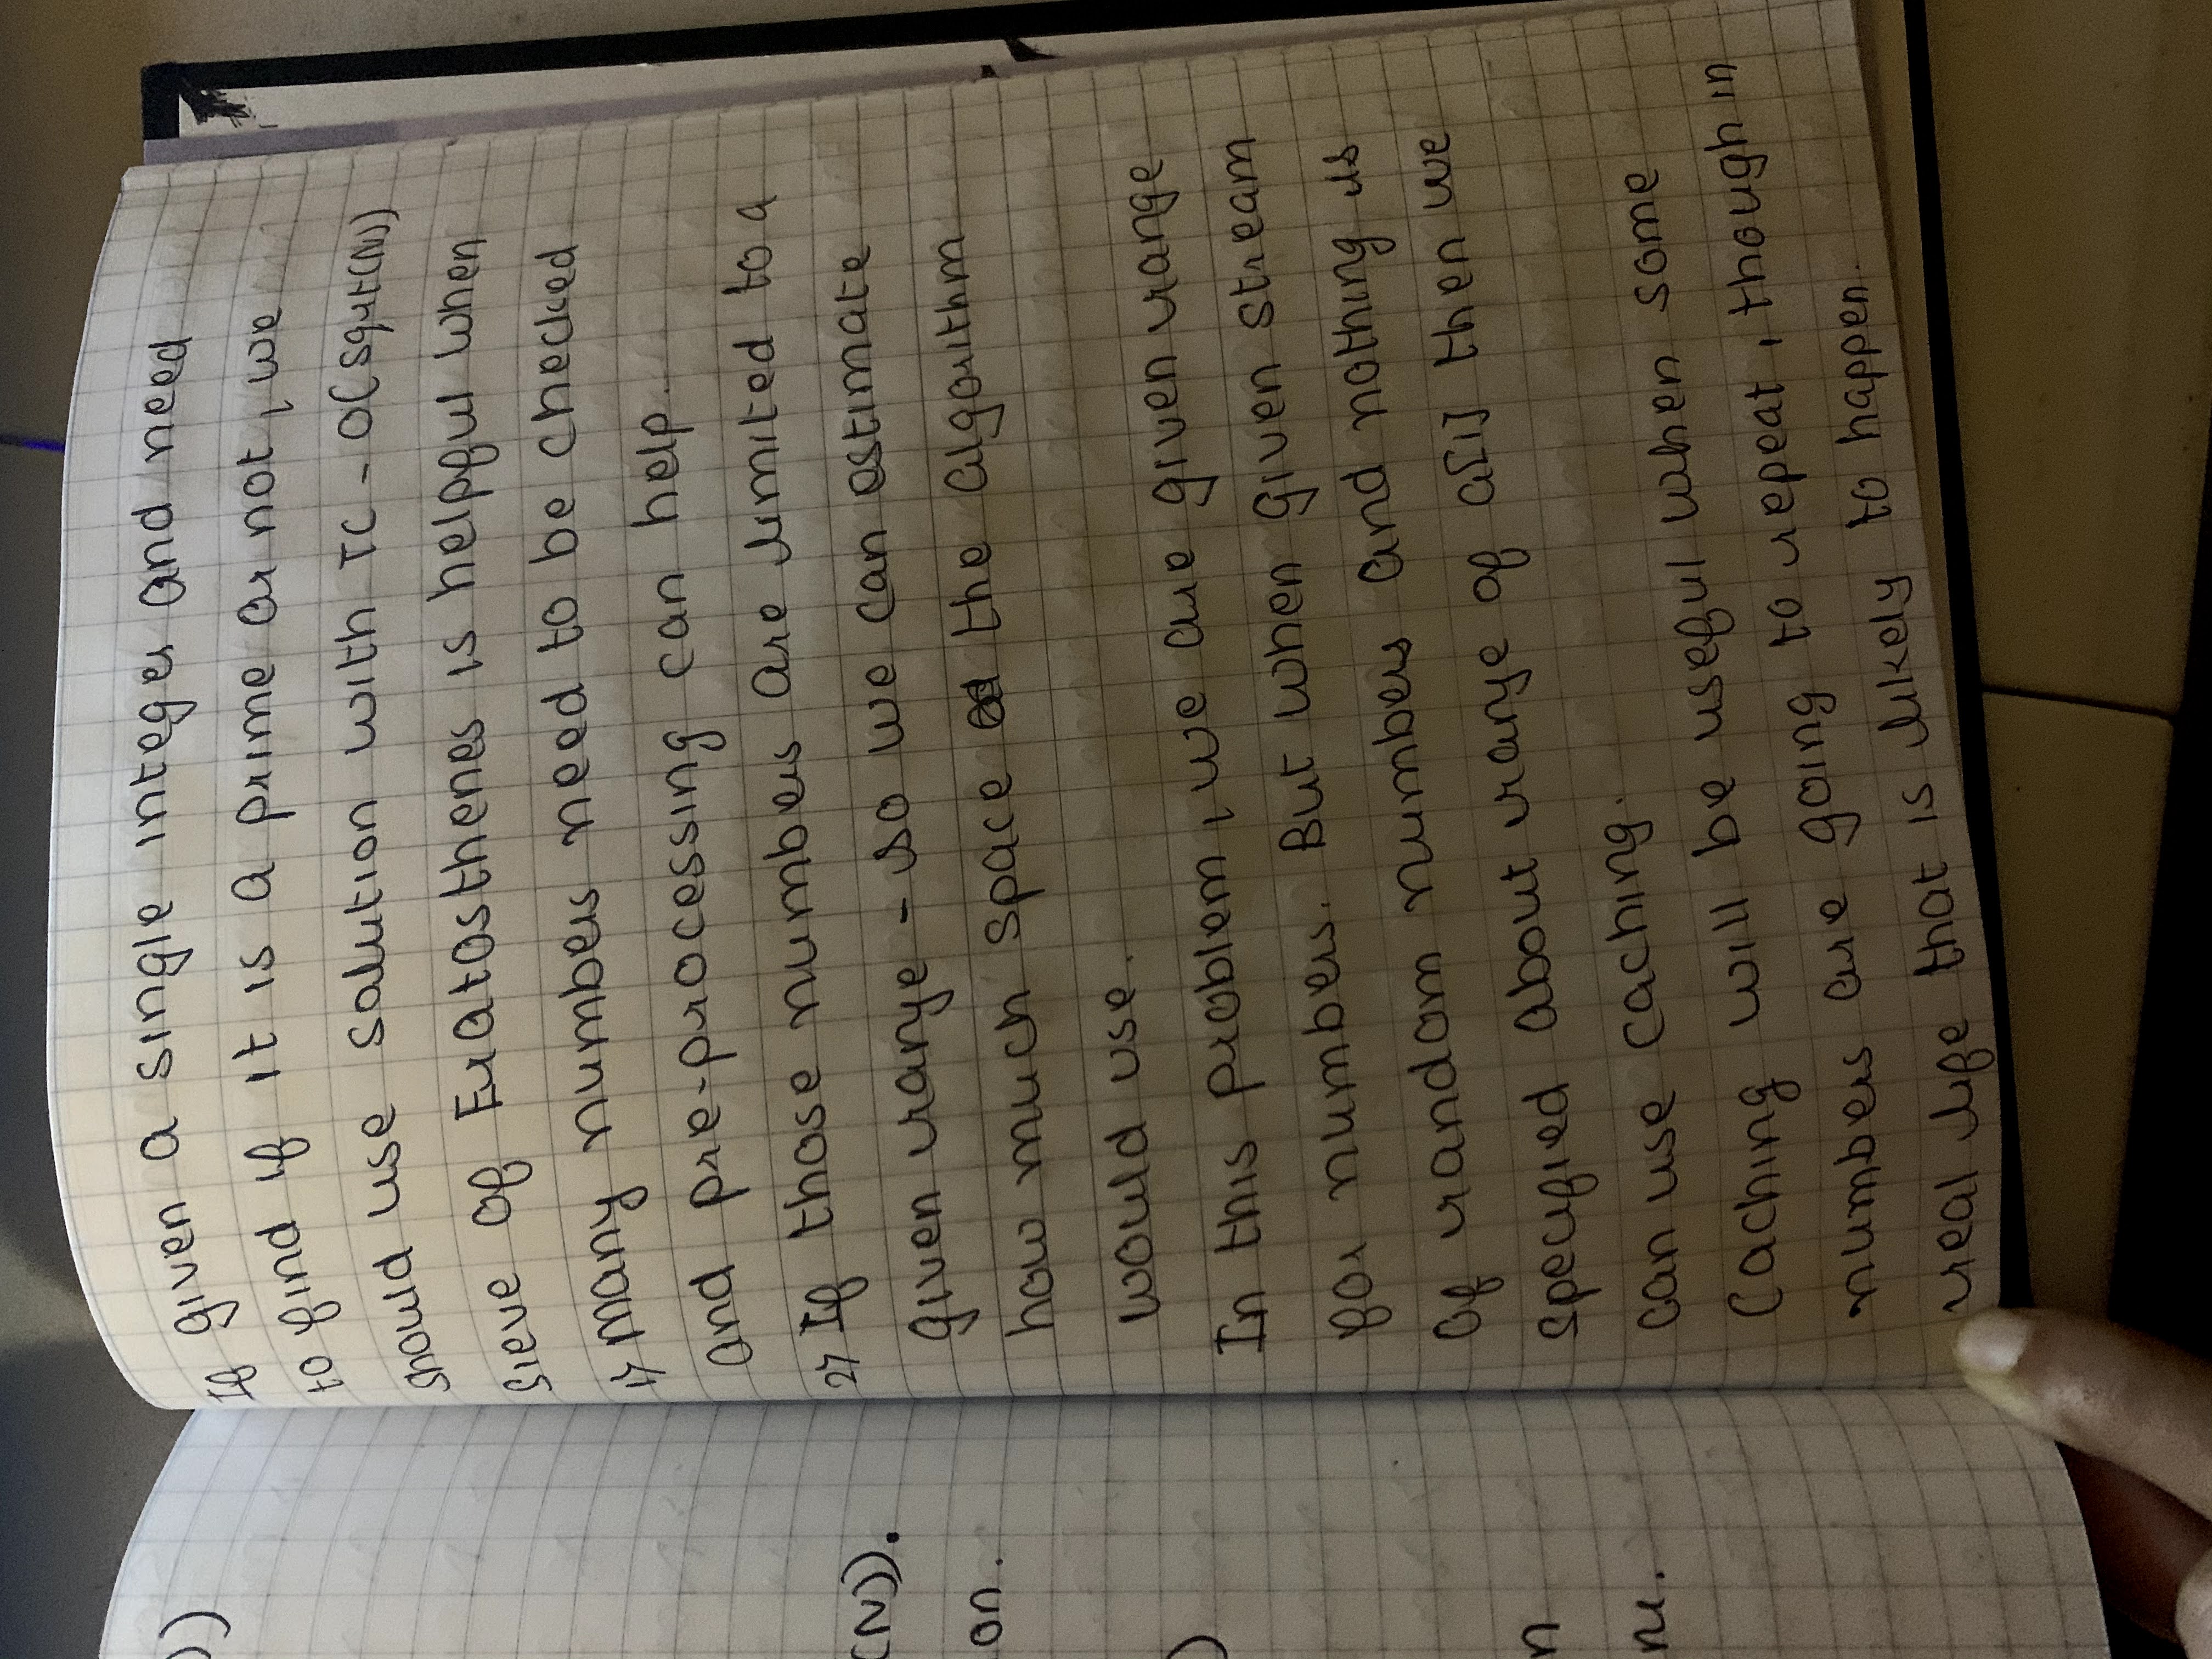 If given a single integer and need
to find if it is a prime or not, we
should use solution with TC - O(sqrt(N))
Sieve of Eratosthenes is helpful when
1) Many numbers need to be checked
and pre-processing can help.
2) If those numbers are limited to a
given range - so we can estimate
how much space the algorithm
would use.
In this problem, we are given range
for numbers. But when given stream
of random numbers and nothing is
specified about range of a[i] then we
can use caching.
Caching will be useful when some
numbers are going to repeat, though in
real life that is likely to happen.
))
(N)).
on.
)
n
re.